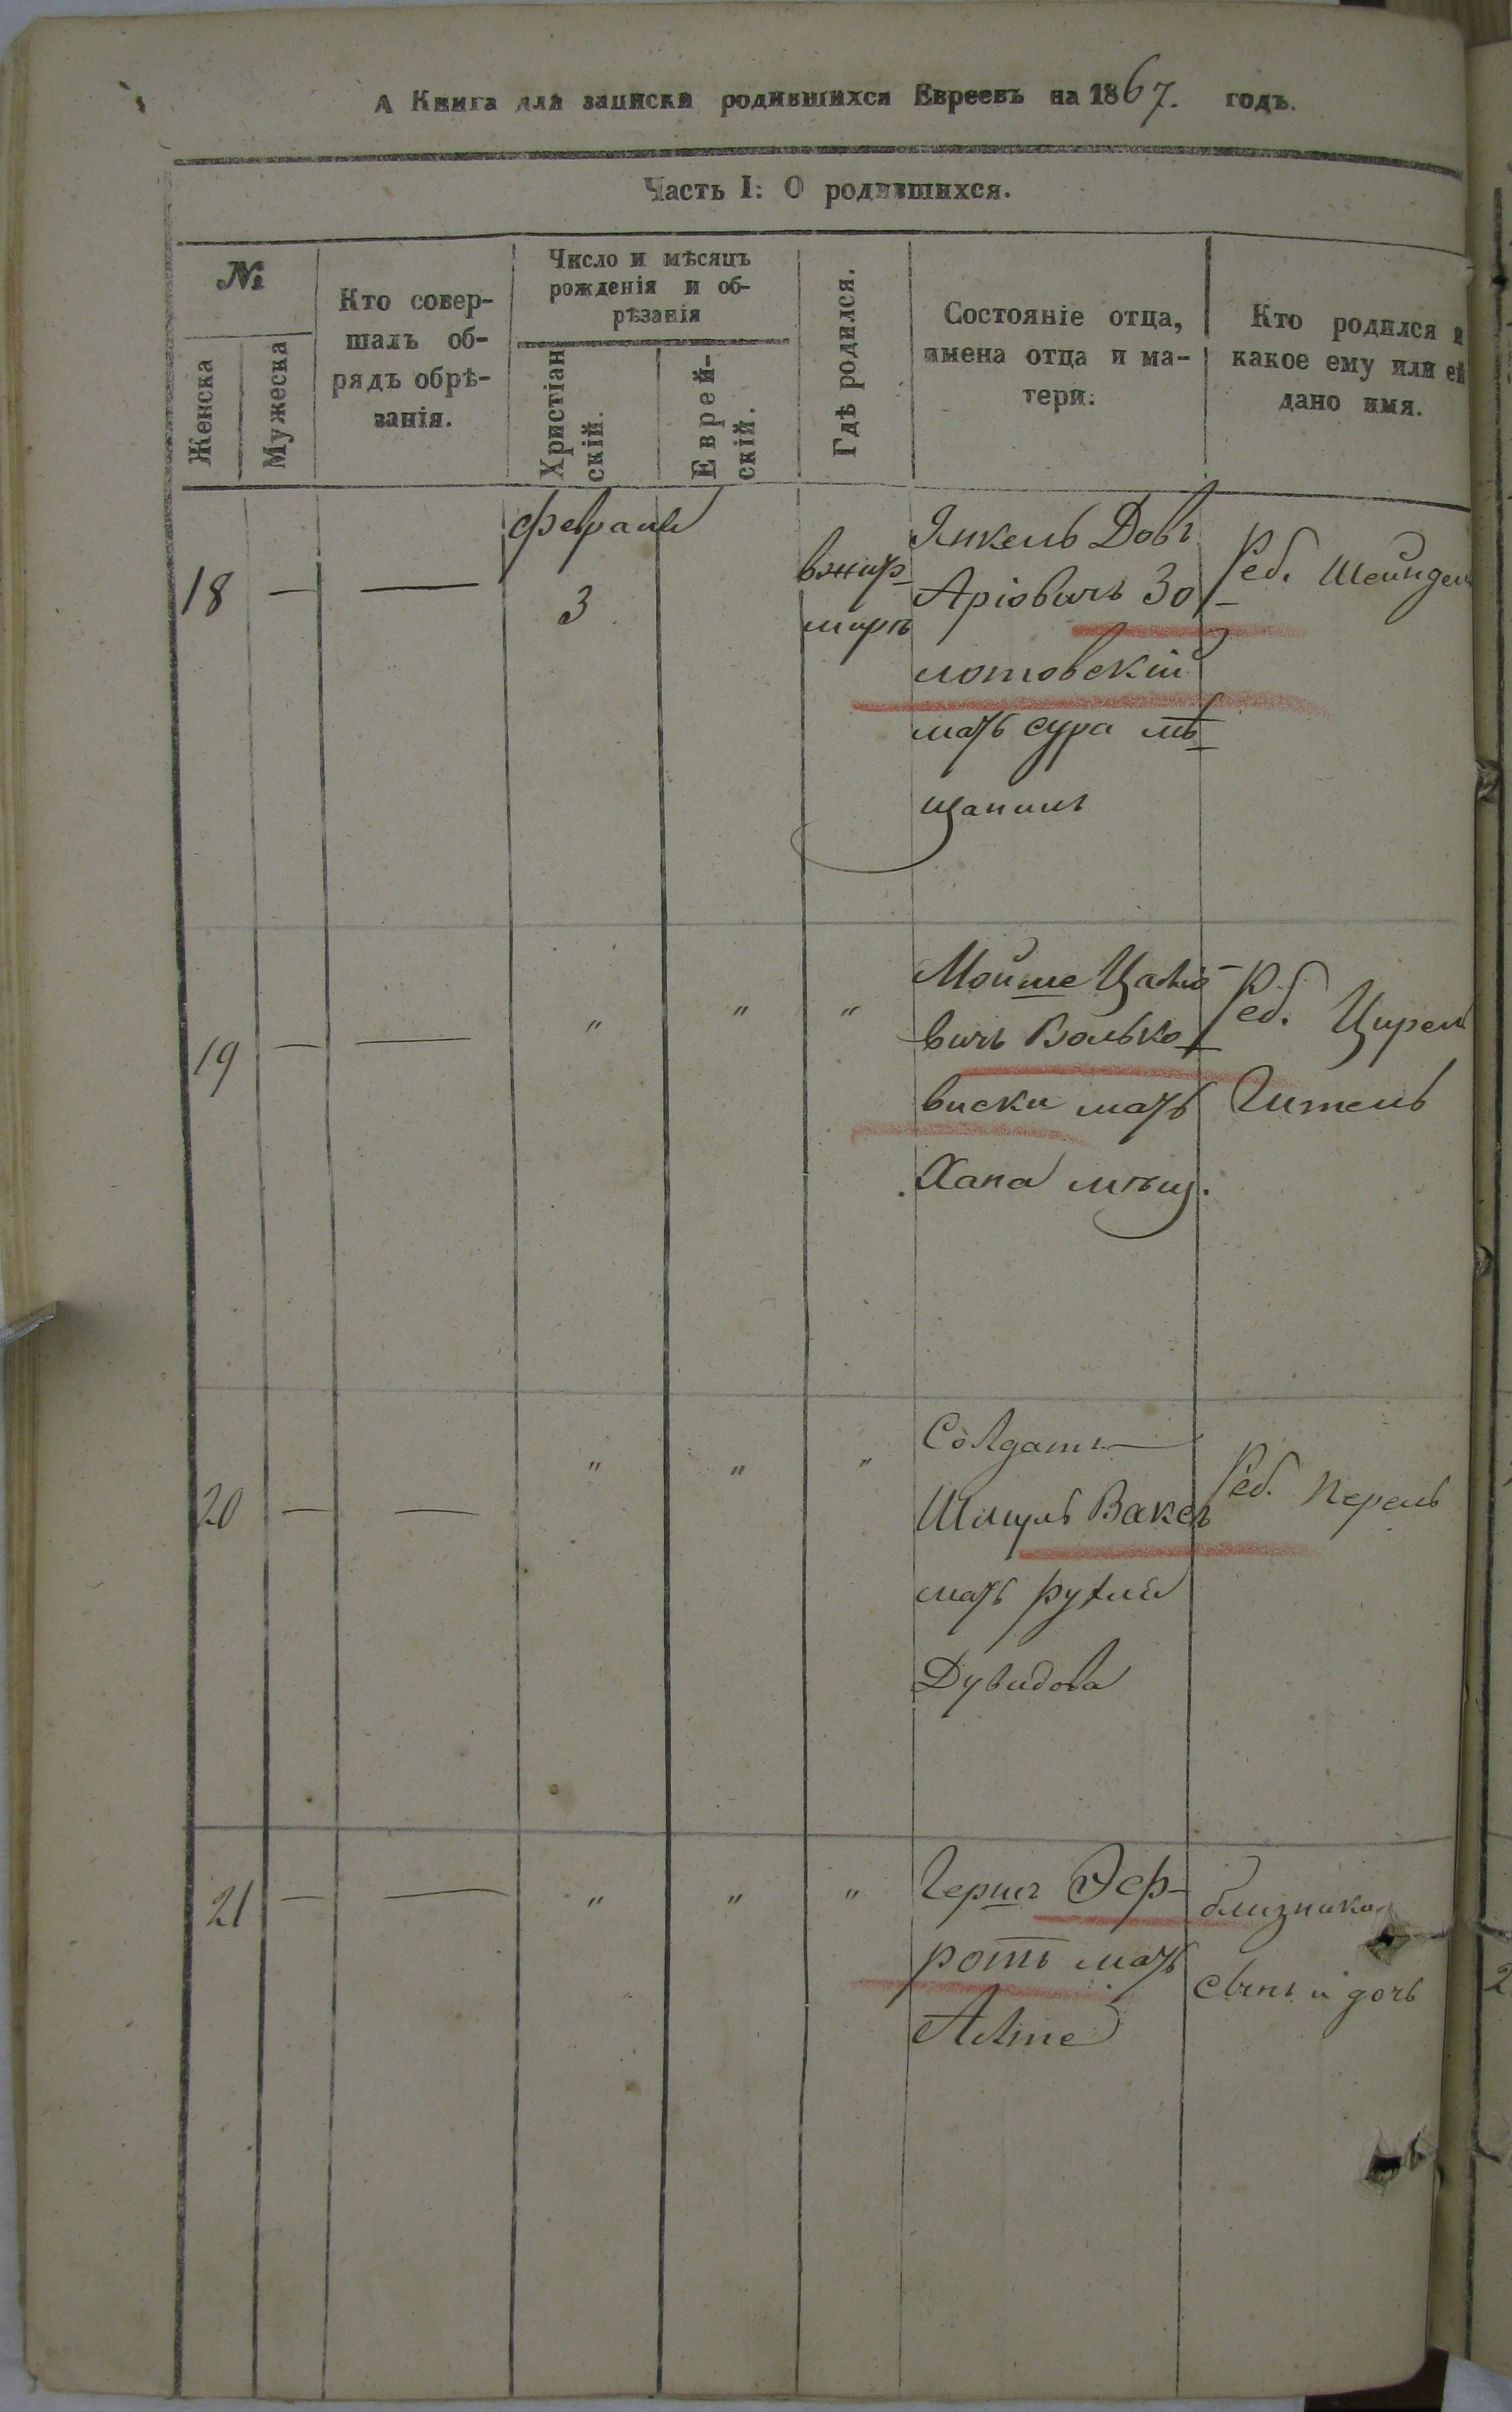 А Книга для записки родившихся Евреевъ на 1867. годъ.
Часть I: О родившихся.
№
Женска
Мужеска
Кто совер-
шалъ об-
рядъ обрѣ-
занія.
Число и мѣсяцъ
рожденія и об-
рѣзанія
Христіан
скій.
Еврей-
скій.
Гдѣ родился.
Состояніе отца,
имена отца и ма-
тери.
Кто родился и
какое ему или ей
дано имя.
18 — —
февраля
3
вжир-
мунъ
Янкель Довъ
Аріовичъ Зо-
лотовскій
мать сура мѣ-
щанинъ
Реб. Шейндель
19 — — " " "
Мойше
вичъ Волько-
виски мать
Хана мѣщ.
Реб. Цирель
Гитель
20 — — " " "
Солдатъ
Шмуль Вакеъ
мать рухля
Дувидова
Реб. Перель
21 — — " " "
Гершъ Эф-
ротъ мать
Алте
близнико
сынъ и дочь